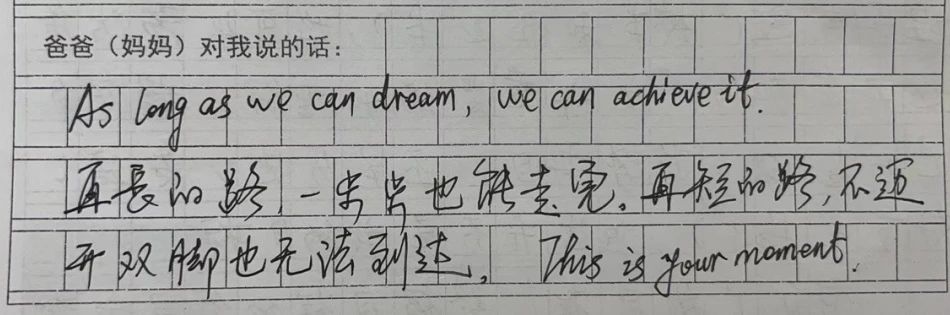 爸爸（妈妈）对我说的话：
As long as we can dream, we can achieve it.
再長的路，一步步也能走完。再短的路，不迈
开双脚也无法到达。 This is your moment.